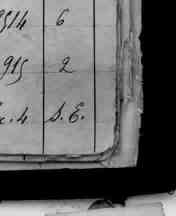 914 6
915 2
c. 4 S. E.